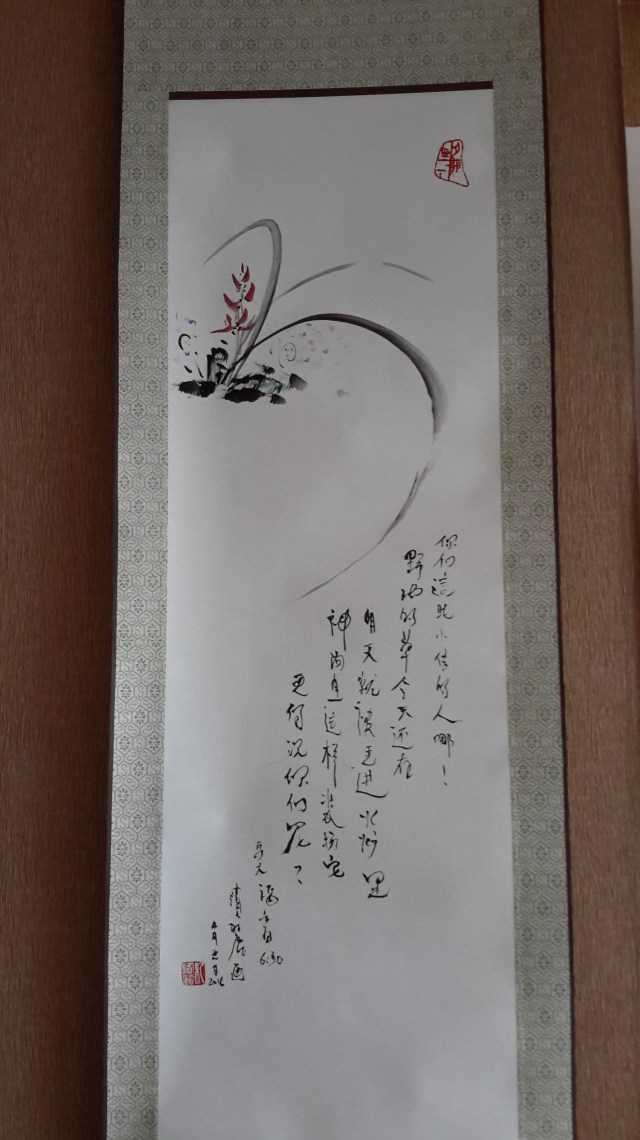 你们這些小信的人哪！
野地的草今天还在
明天就被丢进火炉里
神尚且這样装扮它
更何况你们呢？
马太福音 6:30
画
2016